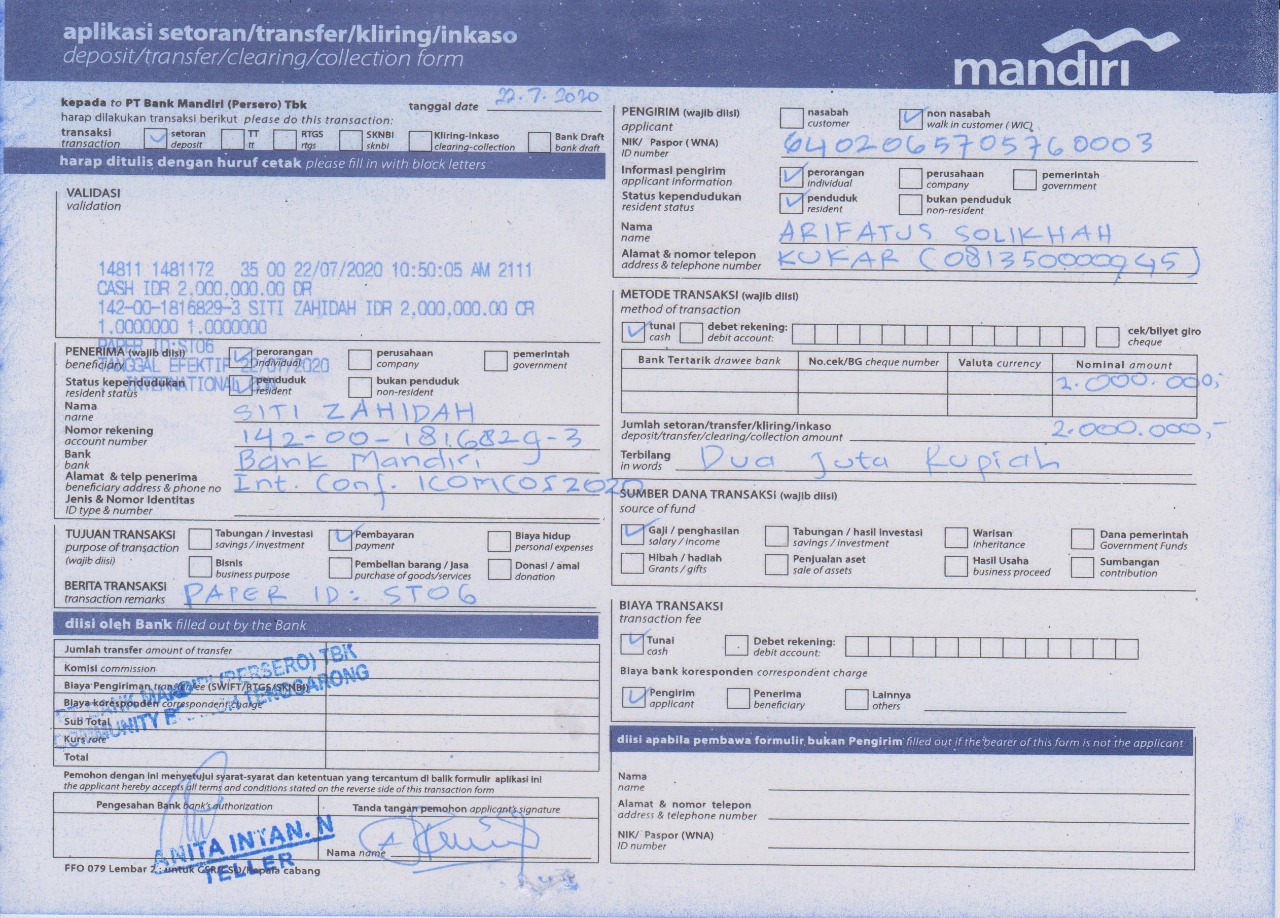 aplikasi setoran/transfer/kliring/inkaso
deposit/transfer/clearing/collection form
mandiri
kepada to PT Bank Mandiri (Persero) Tbk
tanggal date 22.7.2020
harap dilakukan transaksi berikut please do this transaction:
transaksi
transaction
setoran
deposit
TT
tt
RTGS
rtgs
SKNBI
sknbi
Kliring-Inkaso
clearing-collection
Bank Draft
bank draft
harap ditulis dengan huruf cetak please fill in with block letters
VALIDASI
validation
14811 1481172 35 00 22/07/2020 10:50:05 AM 2111
CASH IDR 2,000,000.00 DR
142-00-1816829-3 SITI ZAHIDAH IDR 2,000,000.00 CR
1.0000000 1.0000000
PAPER ID:ST06
TANGGAL EFEKTIF 22/07/2020
INTERNATIONAL
PENERIMA (wajib diisi)
beneficiary
perorangan
individual
perusahaan
company
pemerintah
government
Status kependudukan
resident status
penduduk
resident
bukan penduduk
non-resident
Nama
name
SITI ZAHIDAH
Nomor rekening
account number
142-00-1816829-3
Bank
bank
Bank Mandiri
Alamat & telp penerima
beneficiary address & phone no
Int. Conf. ICOMCOS2020
Jenis & Nomor Identitas
ID type & number
TUJUAN TRANSAKSI
purpose of transaction
(wajib diisi)
Tabungan / investasi
savings / investment
Pembayaran
payment
Biaya hidup
personal expenses
Bisnis
business purpose
Pembelian barang / Jasa
purchase of goods/services
Donasi / amal
donation
BERITA TRANSAKSI
transaction remarks
PAPER ID: ST06
diisi oleh Bank filled out by the Bank
Jumlah transfer amount of transfer
Komisi commission
Biaya Pengiriman transfer fee (SWIFT/RTGS/SKNBI)
Biaya koresponden correspondent charge
Sub Total
Kurs rate
Total
PT BANK MANDIRI (PERSERO) TBK
COMMUNITY BRANCH TENGGARONG
Pemohon dengan ini menyetujui syarat-syarat dan ketentuan yang tercantum di balik formulir aplikasi ini
the applicant hereby accepts all terms and conditions stated on the reverse side of this transaction form
Pengesahan Bank bank's authorization
Tanda tangan pemohon applicant's signature
ANITA INTAN. N
TELLER
Nama name
FFO 079 Lembar 2: untuk CSR/CSO/Kepala cabang
PENGIRIM (wajib diisi)
applicant
nasabah
customer
non nasabah
walk in customer (WIC)
NIK/ Paspor (WNA)
ID number
6402065705760003
Informasi pengirim
applicant information
perorangan
individual
perusahaan
company
pemerintah
government
Status kependudukan
resident status
penduduk
resident
bukan penduduk
non-resident
Nama
name
ARIFATUS SOLIKHAH
Alamat & nomor telepon
address & telephone number
KUKAR (081350000945)
METODE TRANSAKSI (wajib diisi)
method of transaction
tunai
cash
debet rekening:
debit account:
cek/bilyet giro
cheque
Bank Tertarik drawee bank
No.cek/BG cheque number
Valuta currency
Nominal amount
2.000.000,-
Jumlah setoran/transfer/kliring/inkaso
deposit/transfer/clearing/collection amount
2.000.000,-
Terbilang
in words
Dua Juta Rupiah
SUMBER DANA TRANSAKSI (wajib diisi)
source of fund
Gaji / penghasilan
salary / income
Tabungan / hasil investasi
savings / investment
Warisan
inheritance
Dana pemerintah
Government Funds
Hibah / hadiah
Grants / gifts
Penjualan aset
sale of assets
Hasil Usaha
business proceed
Sumbangan
contribution
BIAYA TRANSAKSI
transaction fee
Tunai
cash
Debet rekening:
debit account:
Biaya bank koresponden correspondent charge
Pengirim
applicant
Penerima
beneficiary
Lainnya
others
diisi apabila pembawa formulir bukan Pengirim filled out if the bearer of this form is not the applicant
Nama
name
Alamat & nomor telepon
address & telephone number
NIK/ Paspor (WNA)
ID number